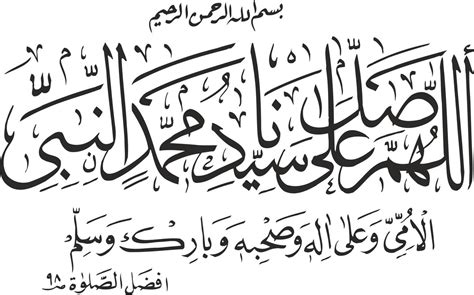 بسم الله الرحمن الرحيم
اَللّٰهُمَّ صَلِّ عَلٰى سَيِّدِنَا مُحَمَّدٍ النَّبِيِّ
الْاُمِّيِّ وَعَلٰى اٰلِهٖ وَصَحْبِهٖ وَبَارِكْ وَسَلِّمْ
افضل الصلوٰة